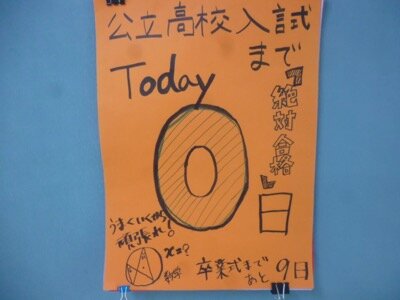 公立高校入試
まで
Today
0
日
『絶対合格』
うまくいくから
頑張れ!
x=?
卒業式まで
あと 9日